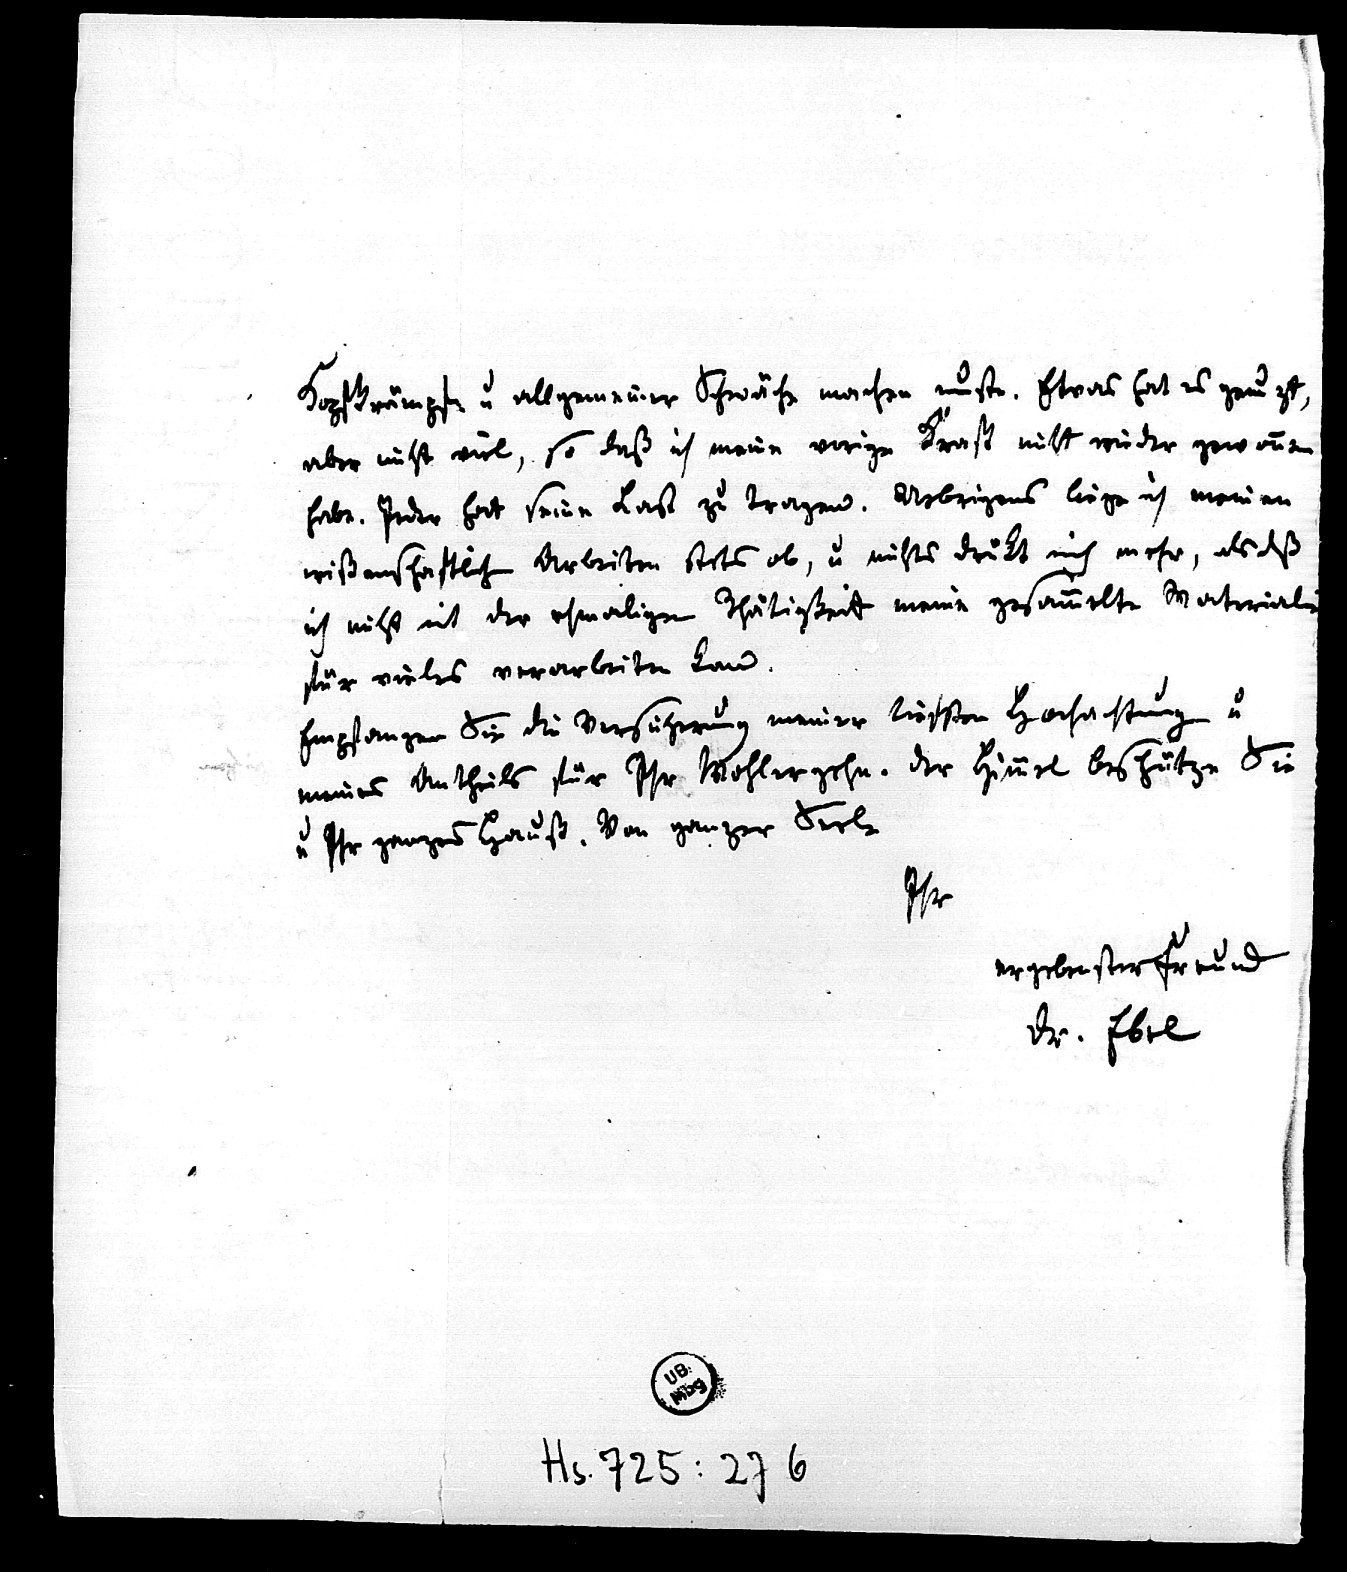 Kopfkrämpfe u allgemeiner Schwäche machen muste. Etwas hat es genuzt,
aber nicht viel, so daß ich meine vorige Kraft nicht wieder gewoñen
habe. Jeder hat seine Last zu tragen. Uebrigens liege ich meinen
wißenschaftlich Arbeiten stets ob, u nichts drükt mich mehr, als dß
ich nicht mit der ehmaligen Thätigkeit meine gesam̄elte Materialie
für vieles verarbeiten kan.
Empfangen Sie die Versicherung meiner tiefsten Hochachtung u
meines Antheils für Ihr Wohlergehn. Der Him̄el beschütze Sie
u Ihr ganzes Hauß. Von ganzer Seele
Ihr
ergebenster Freund
Dr. Ebel
UB. Mbg
Hs. 725: 276